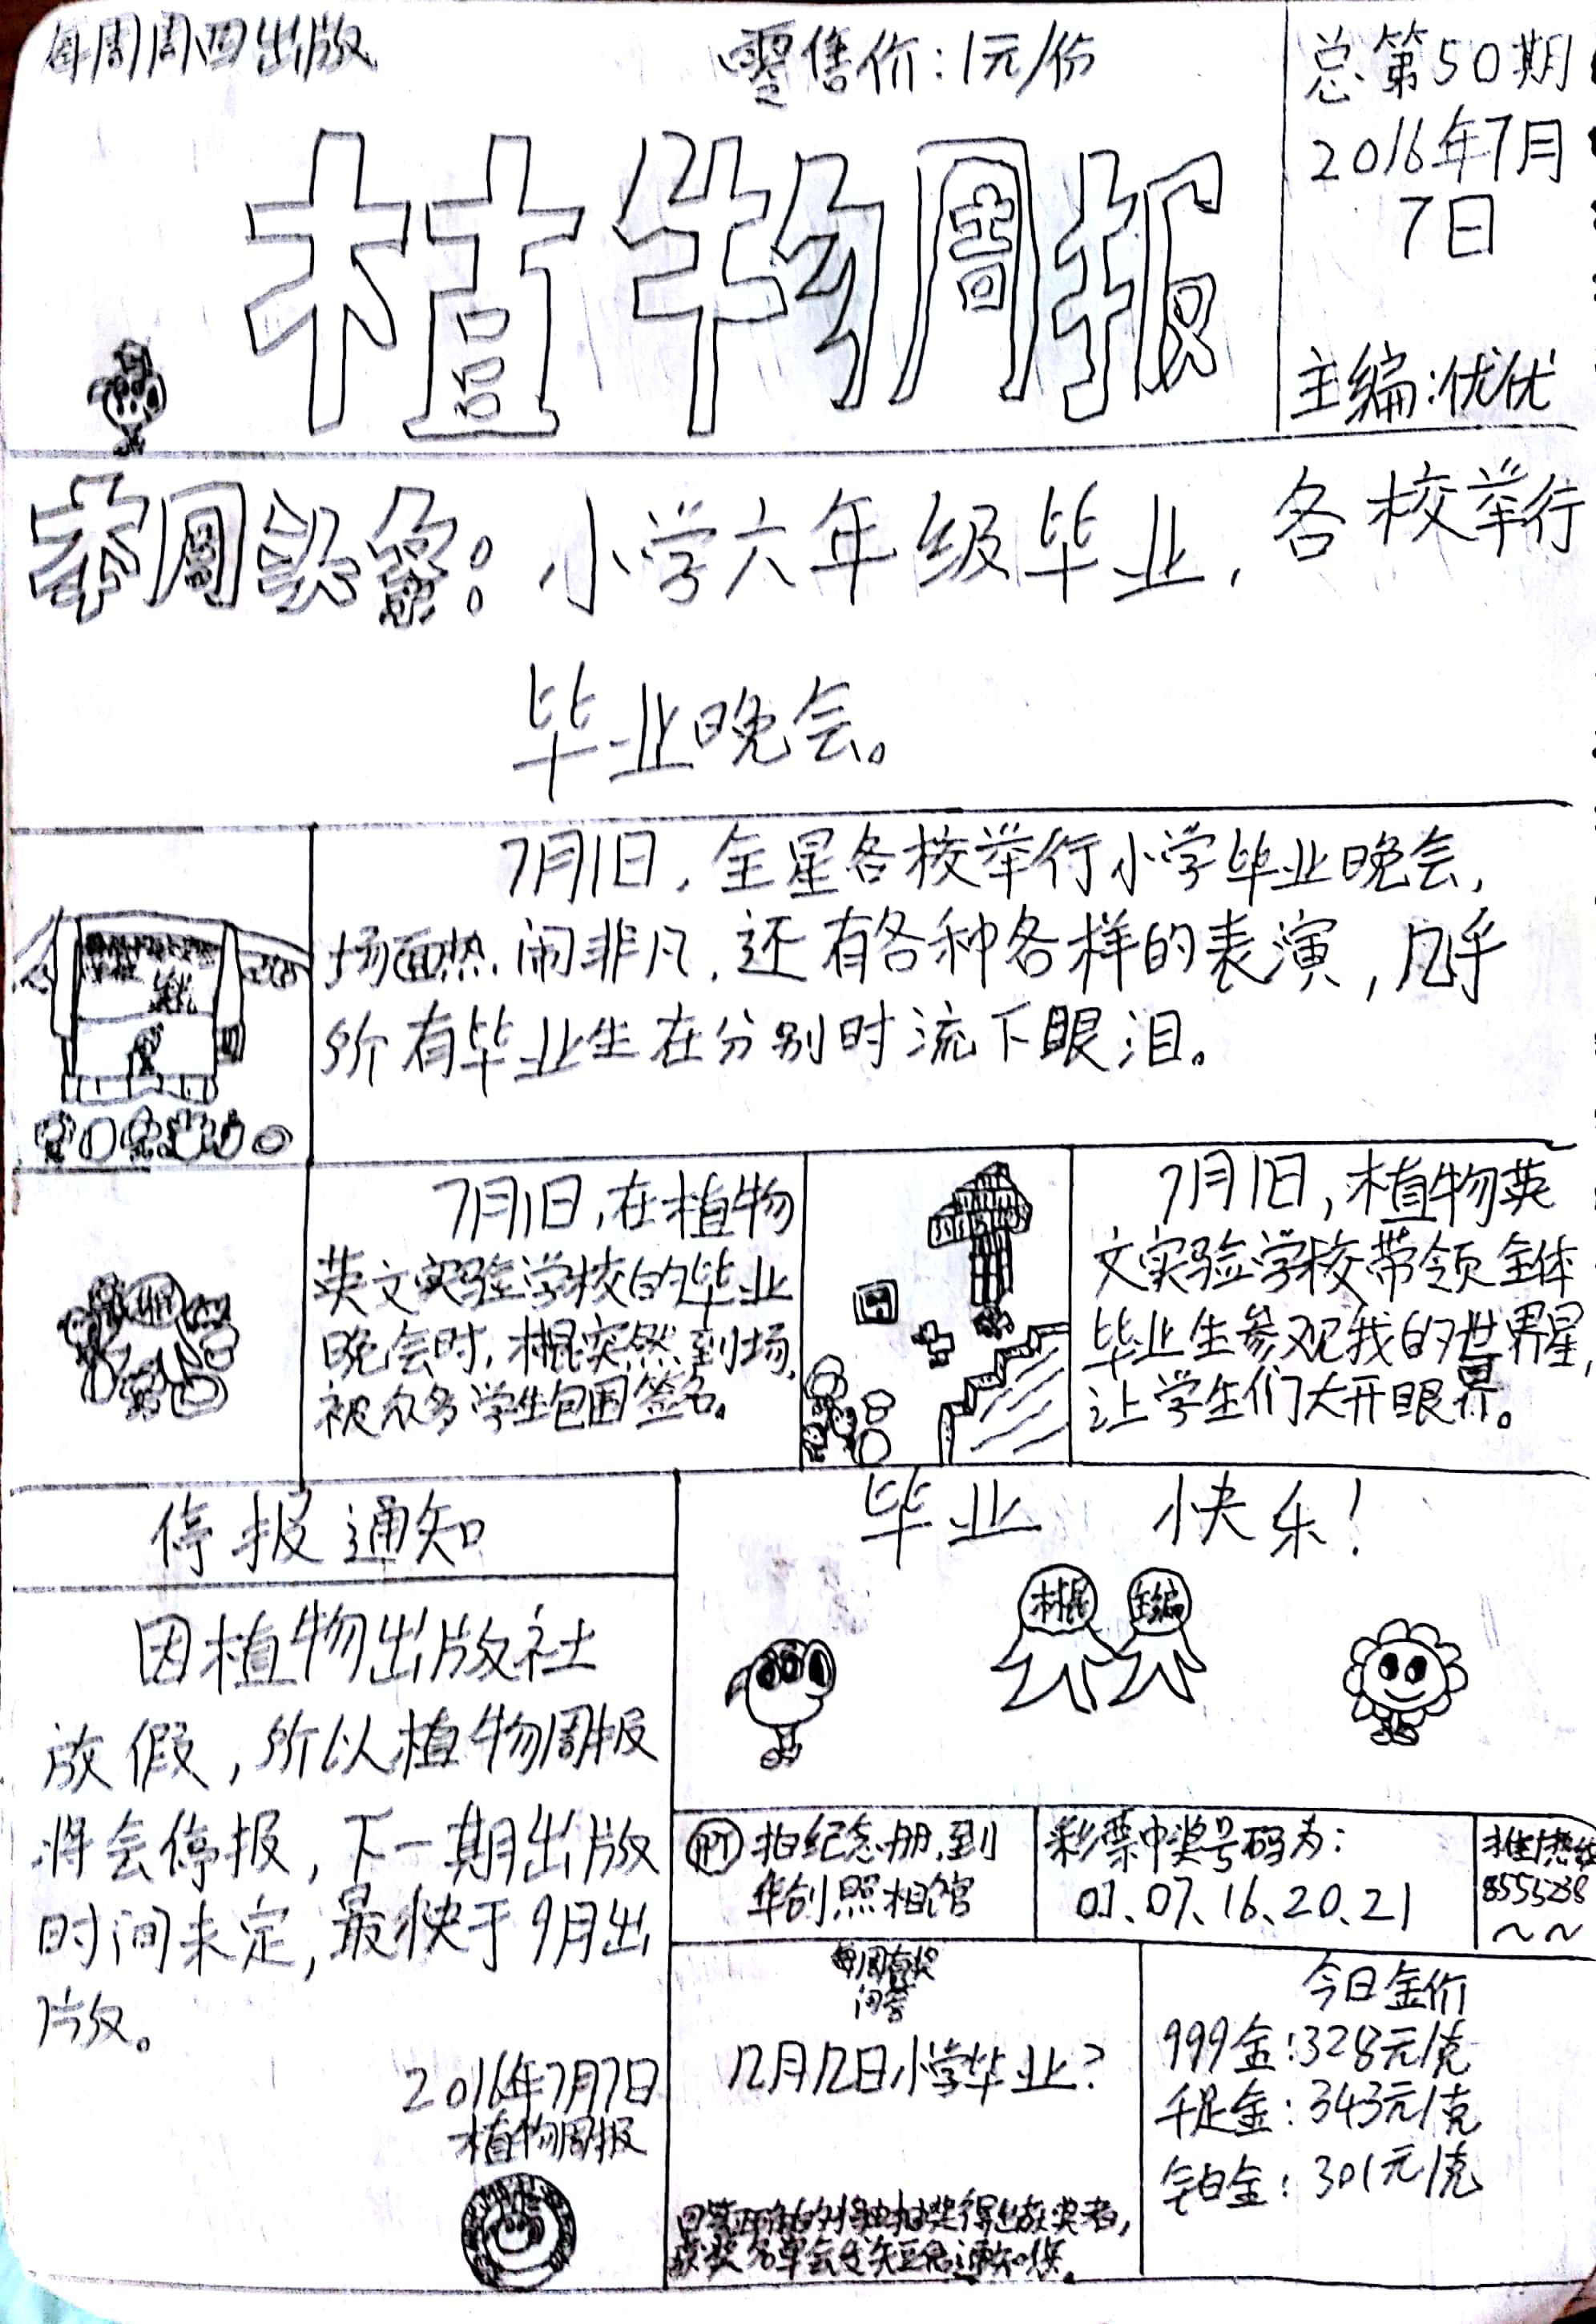 每周周四出版
零售价：1元/份
总第50期
2016年7月
7日
主编：优优
植物周报
本周头条：小学六年级毕业，各校举行
毕业晚会。
7月1日，全星各校举行小学毕业晚会，
场面热闹非凡，还有各种各样的表演，几乎
所有毕业生在分别时流下眼泪。
7月1日，在植物
英文实验学校的毕业
晚会时，棍突然到场，
被众多学生包围签名。
7月1日，植物英
文实验学校带领全体
毕业生参观我的世界星，
让学生们大开眼界。
停报通知
因植物出版社
放假，所以植物周报
将会停报，下一期出版
时间未定，最快于9月出
版。
2016年7月7日
植物周报
毕业 快乐！
棍
主编
拍纪念册，到
华创照相馆
彩票中奖号码为：
01、07、16、20、21
～～
每周有奖
问答
几月几日小学毕业？
获奖名单会发短信通知您。
今日金价
999金：328元/克
千足金：343元/克
铂金：301元/克